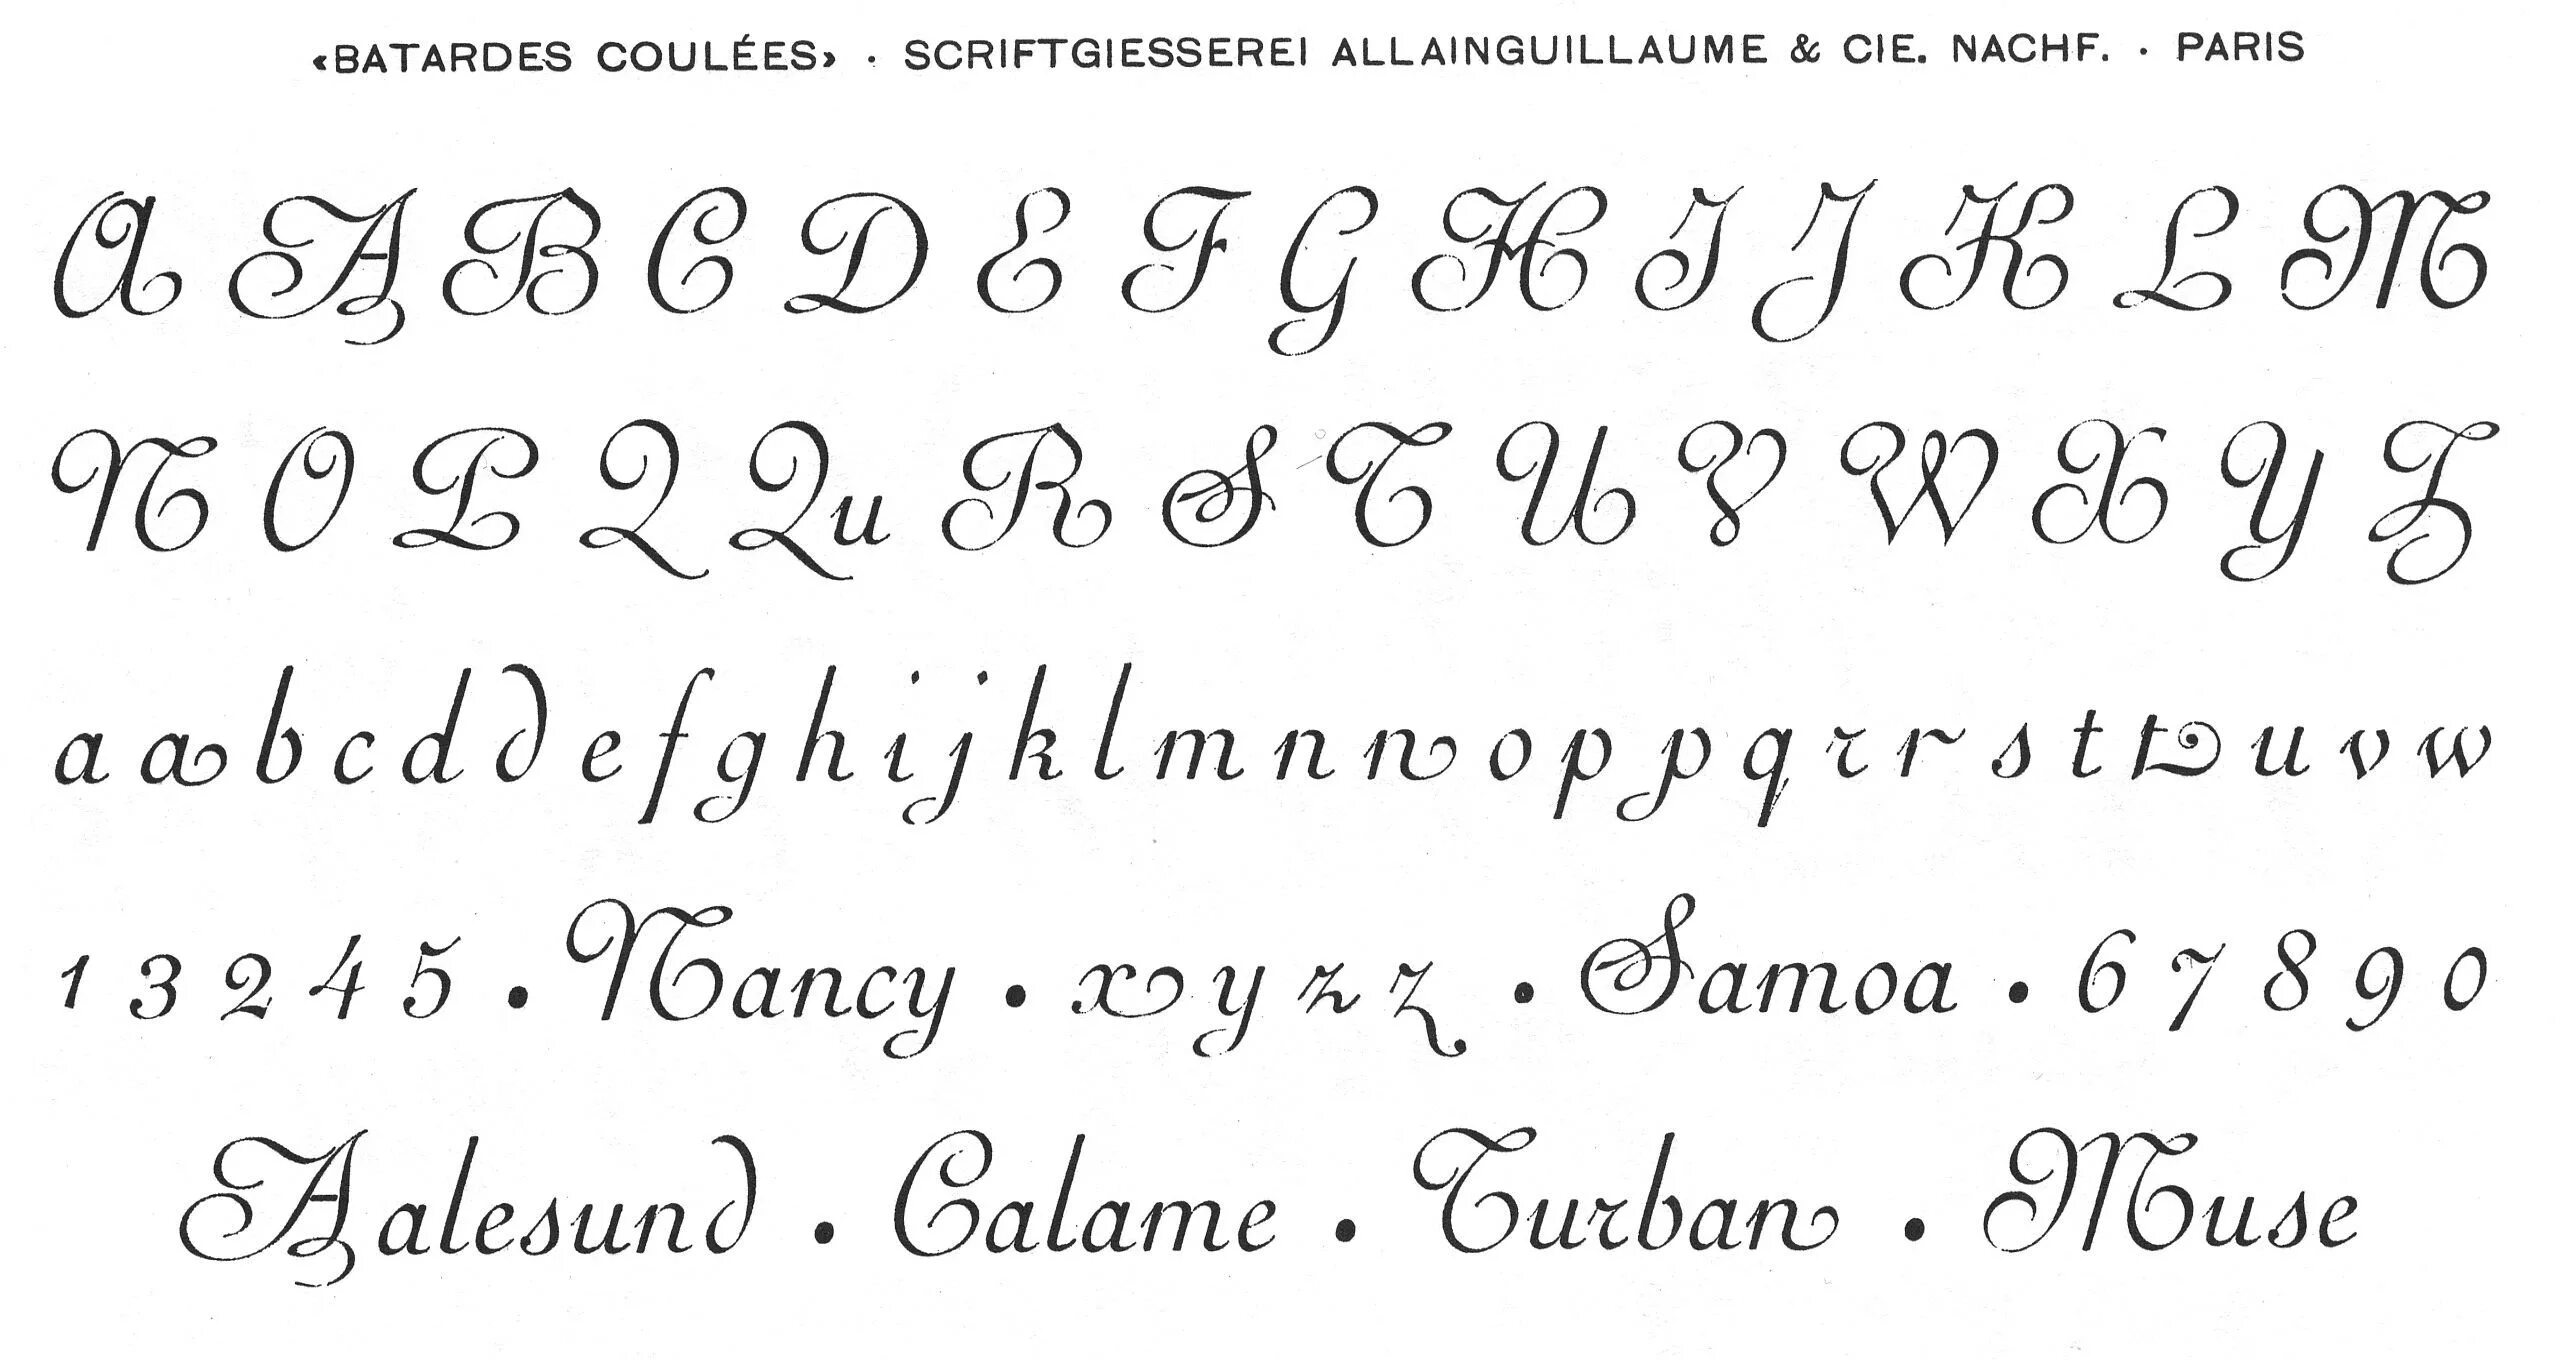 «BATARDES COULÉES» · SCRIFTGIESSEREI ALLAINGUILLAUME & CIE. NACHF. · PARIS
A A B C D E F G H I J K L M
N O P Q Qu R S T U V W X Y Z
a a b c d d e f g h i j k l m n n o p p q r r s t t u v w
1 3 2 4 5 • Nancy • x y z z • Samoa • 6 7 8 9 0
Aalesund • Calame • Turban • Muse